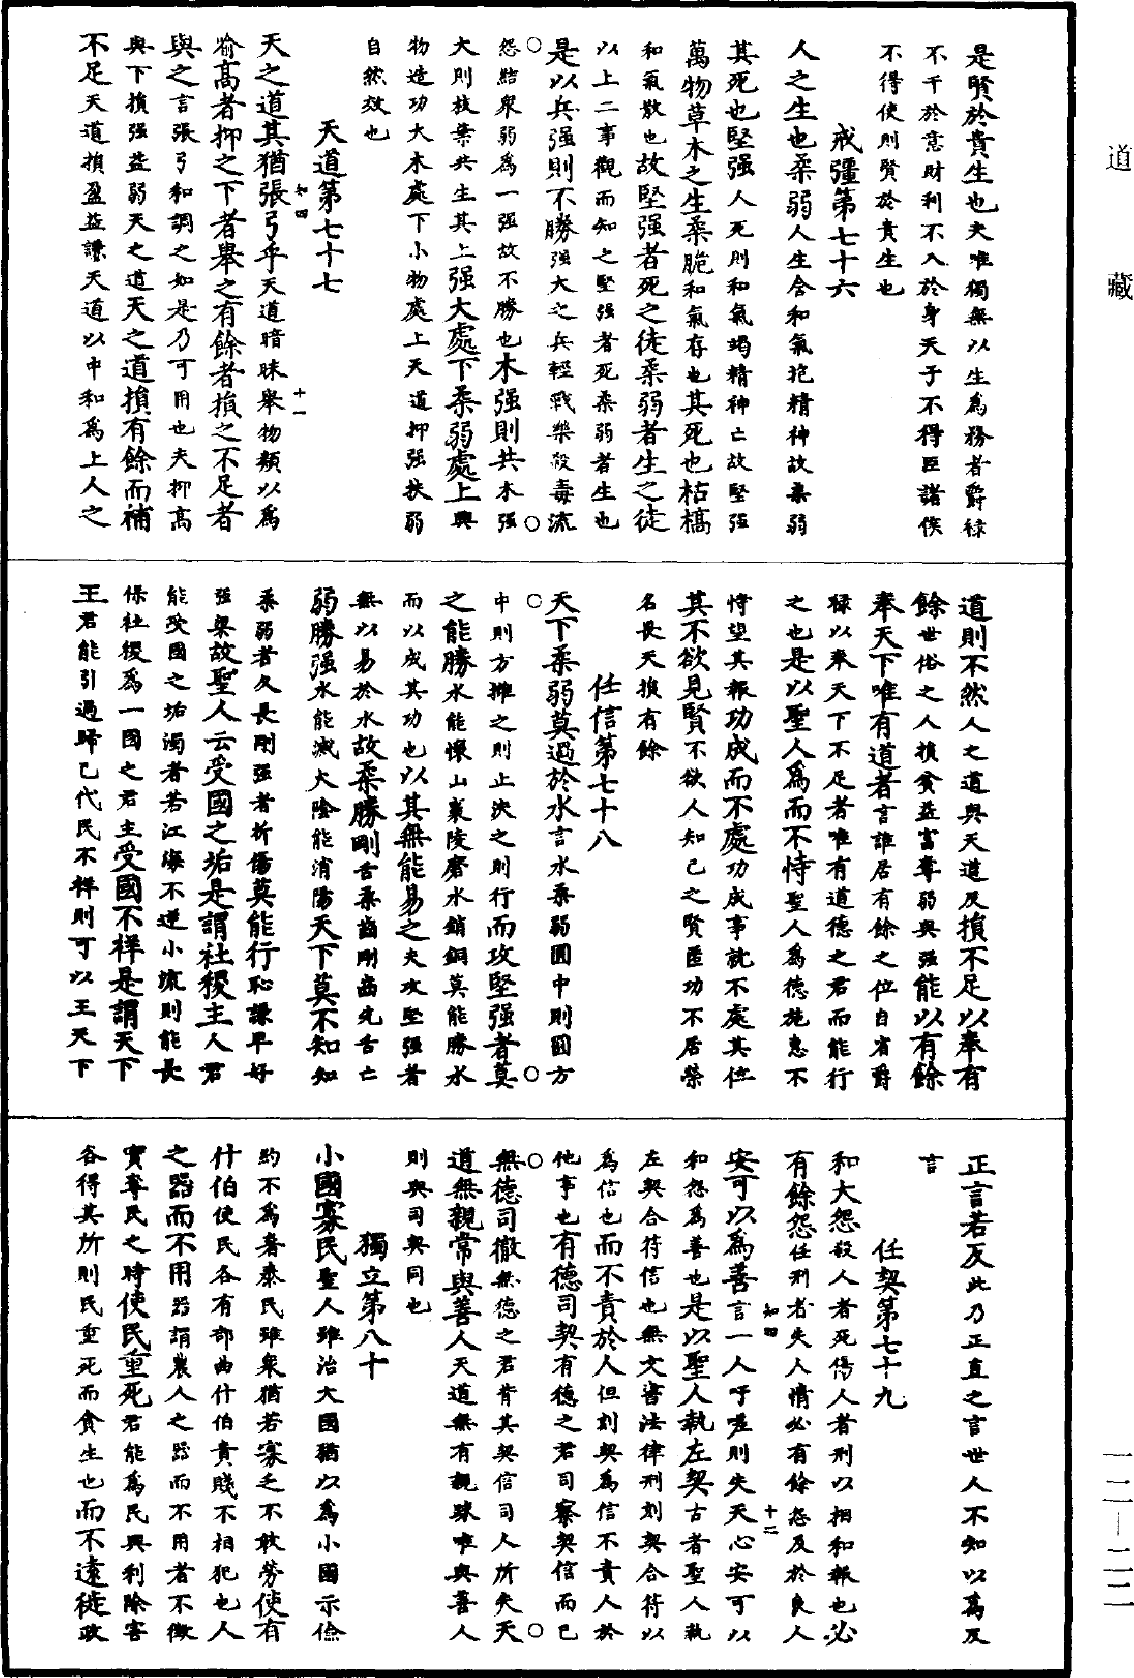 道藏
一二—二二
是賢於貴生也夫唯獨無以生為務者爵祿
不干於意財利不入於身天子不得臣諸侯
不得使則賢於貴生也
戒彊第七十六
人之生也柔弱人生含和氣抱精神故柔弱
其死也堅强人死則和氣竭精神亡故堅强
萬物草木之生柔脆和氣存也其死也枯槁
和氣散也故堅强者死之徒柔弱者生之徒
以上二事觀而知之堅强者死柔弱者生也
是以兵强則不勝强大之兵輕戰樂殺毒流
怨結衆弱為一强故不勝也木强則共木强
大則枝葉共生其上强大處下柔弱處上興
物造功大木處下小物處上天道抑强扶弱
自然效也
天道第七十七
知四
十一
天之道其猶張弓乎天道暗昧舉物類以為
喻高者抑之下者舉之有餘者損之不足者
與之言張弓和調之如是乃可用也夫抑高
與下損强益弱天之道天之道損有餘而補
不足天道損盈益謙天道以中和為上人之
道則不然人之道與天道反損不足以奉有
餘世俗之人損貧益富奪弱與强能以有餘
奉天下唯有道者言誰居有餘之位自省爵
祿以奉天下不足者唯有道德之君而能行
之也是以聖人為而不恃聖人為德施惠不
恃望其報功成而不處功成事就不處其位
其不欲見賢不欲人知己之賢匿功不居榮
名畏天損有餘
任信第七十八
天下柔弱莫過於水言水柔弱圓中則圓方
中則方擁之則止決之則行而攻堅强者莫
之能勝水能懷山襄陵磨水銷銅莫能勝水
而以成其功也以其無能易之夫攻堅强者
無以易於水故柔勝剛舌柔齒剛齒先舌亡
弱勝强水能滅火陰能消陽天下莫不知知
柔弱者久長剛强者折傷莫能行恥謙卑好
强梁故聖人云受國之垢是謂社稷主人君
能受國之垢濁者若江海不逆小流則能長
保社稷為一國之君主受國不祥是謂天下
王君能引過歸己代民不祥則可以王天下
正言若反此乃正直之言世人不知以為反
言
任契第七十九
和大怨殺人者死傷人者刑以相和報也必
有餘怨任刑者失人情必有餘怨及於良人
知四
十二
安可以為善言一人吁嗟則失天心安可以
和怨為善也是以聖人執左契古者聖人執
左契合符信也無文書法律刑刻契合符以
為信也而不責於人但刻契為信不責人於
他事也有德司契有德之君司察契信而已
無德司徹無德之君背其契信司人所失天
道無親常與善人天道無有親踈唯與善人
則與司契同也
獨立第八十
小國寡民聖人雖治大國猶以為小國示儉
約不為奢泰民雖衆猶若寡乏不敢勞使有
什伯使民各有部曲什伯貴賤不相犯也人
之器而不用器謂農人之器而不用者不徵
實奪民之時使民重死君能為民興利除害
各得其所則民重死而貪生也而不遠徙政